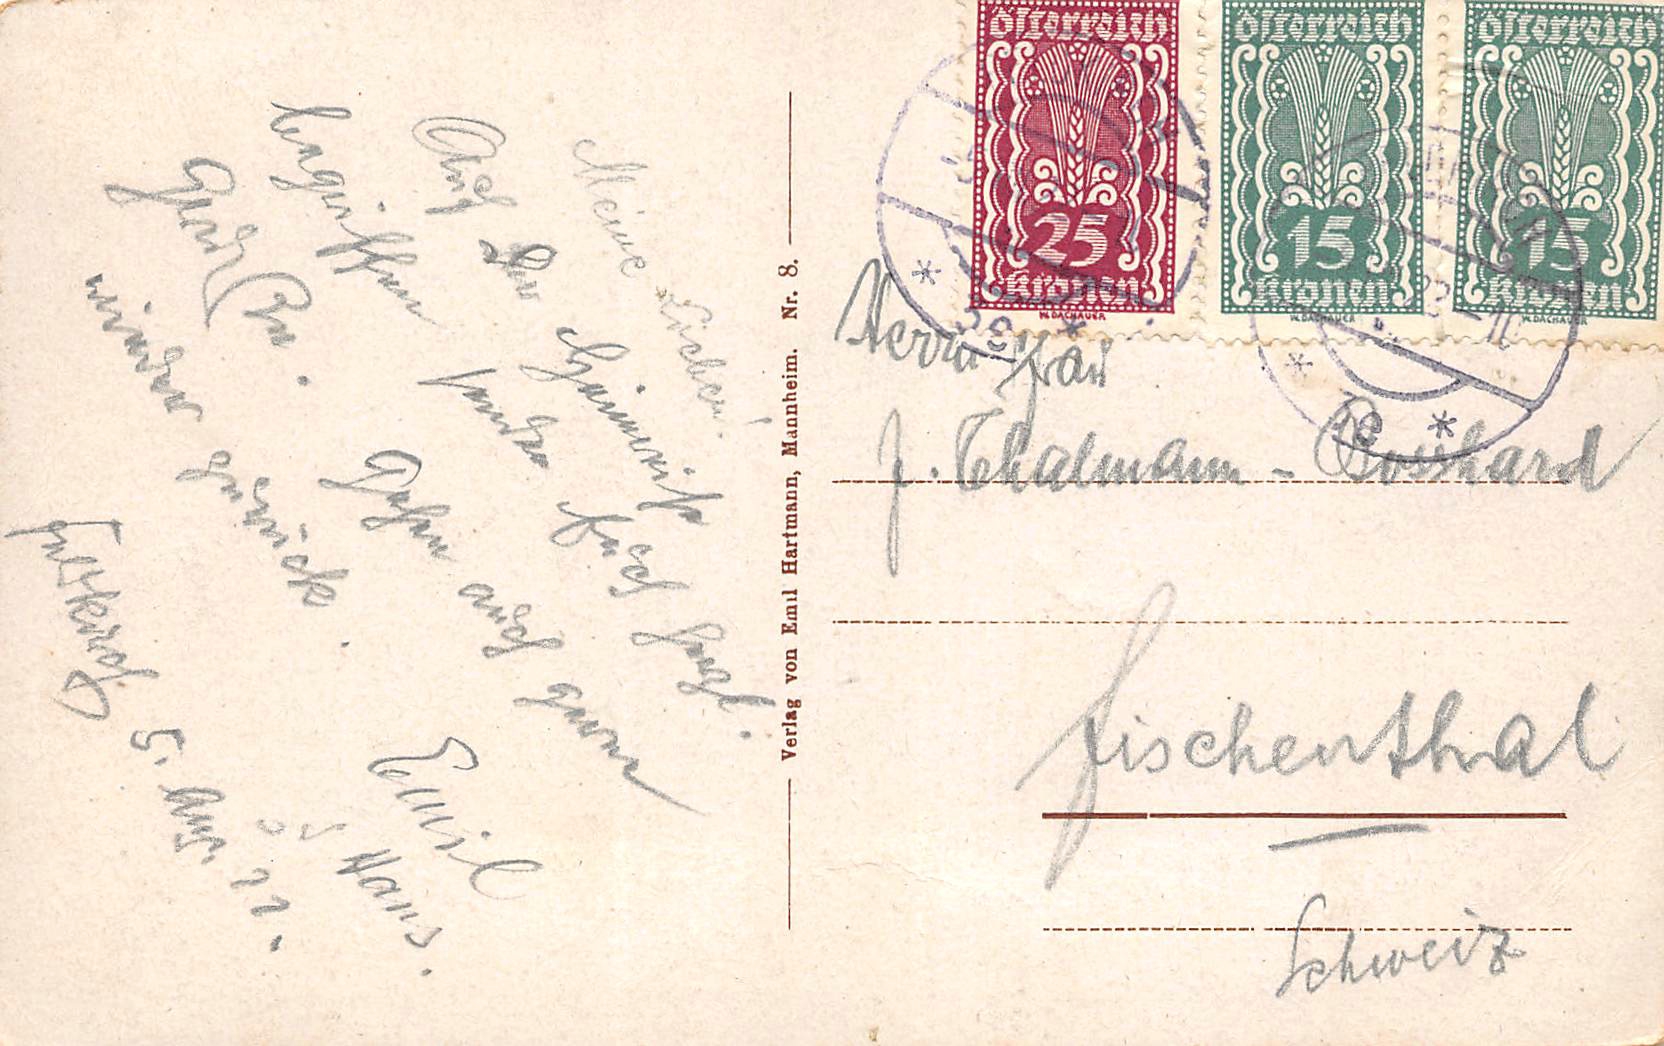 Meine Lieben!
Auf der Heimreise
begriffen sende Euch herzl.
Grüße.
Gehen auch gerne
wieder zurück.
Emil
& Hans.
Feldkirch 5. Aug. 22.
Verlag von Emil Hartmann, Mannheim. Nr. 8.
Österreich
25
Kronen
W. DACHAUER
Österreich
15
Kronen
W. DACHAUER
Österreich
15
Kronen
W. DACHAUER
Herrn Frau
J. Thalmann - Bosshard
Fischenthal
Schweiz